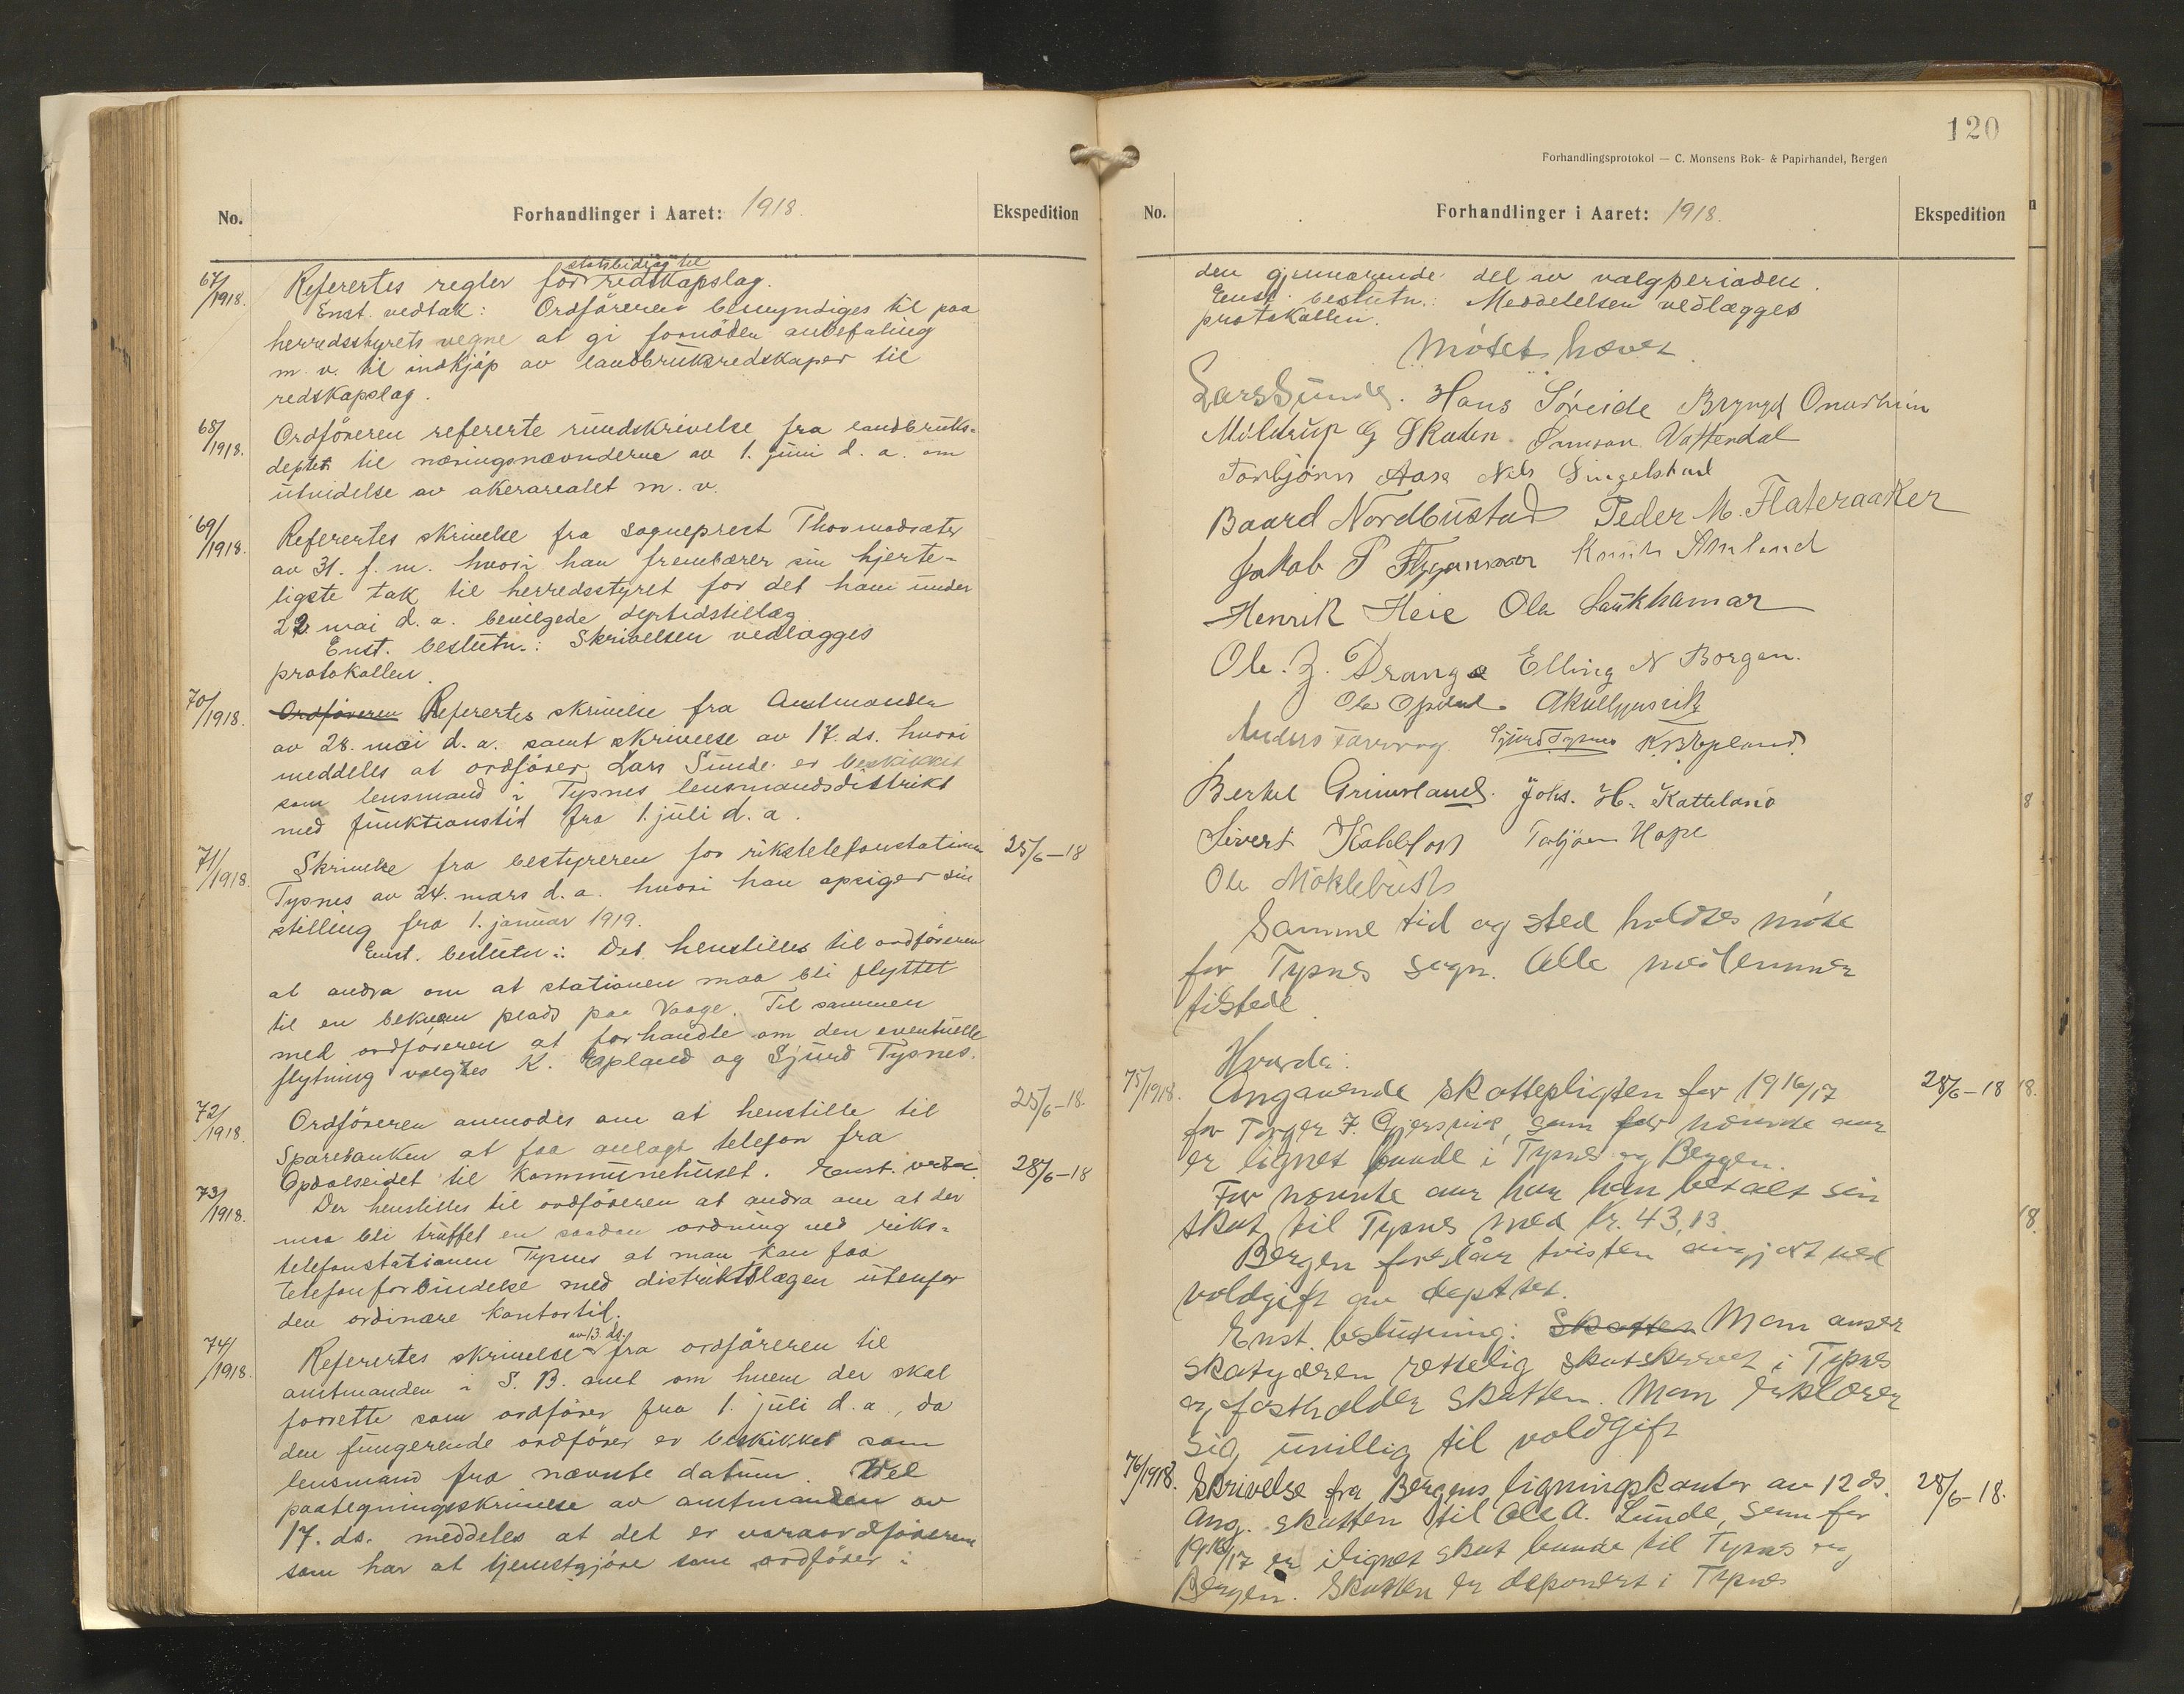 No. Forhandlinger i Aaret: 1918. Ekspedition
67/1918. Referertes regler for statsbidrag til redskapslag.
Enst. vedtak: Ordföreren bemyndiges til paa
herredsstyrets vegne at gi fornöden anbefaling
m. v. til indkjöp av landbruksredskaper til
redskapslag.
68/1918. Ordföreren refererte rundskrivelse fra landbruks-
deptet til næringsnævnderne av 1. juni d. a. om
utvidelse av akerarealet m. v.
69/1918. Referertes skrivelse fra sogneprest Thormodsæter
av 31. f. m. hvori han frembærer sin hjerte-
ligste tak til herredsstyret for det ham under
22 mai d. a. bevilgede dyrtidstillæg
Enst. beslutn.: Skrivelsen vedlægges
protokollen.
70/1918. Ordföreren Referertes skrivelse fra Amtmanden
av 28. mai d. a. samt skrivelse av 17. ds. hvori
meddeles at ordförer Lars Sunde er beskikket
som lensmand i Tysnes lensmandsdistrikt
med funktionstid fra 1. juli d. a.
71/1918. Skrivelse fra bestyreren for rikstelefonstation 25/6-18
Tysnes av 24. mars d. a. hvori han opsiger sin
stilling fra 1. januar 1919.
Enst. beslutn.: Det henstilles til ordföreren
at andra om at stationen maa bli flyttet
til en bekvem plads paa Vaage. Til sammen
med ordföreren at forhandle om den eventuelle
flytning valgtes K. Epland og Sjurd Tysnes.
72/1918. Ordföreren anmodes om at henstille til 25/6-18.
Sparebanken at faa anlagt telefon fra
Opdalseidet til Kommunehuset. Enst. vedtat 28/6-18
73/1918. Der henstilles til ordföreren at andra om at der
maa bli truffet en saadan ordning ved riks-
telefonstationen Tysnes at man kan faa
telefonforbindelse med distriktslægen utenfor
den ordinære kontortid.
74/1918. Referertes skrivelse av 13. ds. fra ordföreren til
amtmanden i S. B. amt om hvem der skal
forrette som ordförer fra 1. juli d. a., da
den fungerende ordförer er beskikket som
lensmand fra nævnte datum. Ved
paategningsskrivelse av amtmanden av
17. ds. meddeles at det er varaordföreren
som har at tjenestgjöre som ordförer i
120
Forhandlingsprotokol — C. Monsens Bok- & Papirhandel, Bergen
No. Forhandlinger i Aaret: 1918. Ekspedition
den gjenværende del av valgperioden.
Enst. beslutn.: Meddelelsen vedlægges
protokollen.
Mötet hævet.
Lars Sunde. Hans Söreide Brynjel Onarheim
Mildrup G Skaden Ommon Vattendal
Torbjörn Aase Nils Singelstad
Baard Nordbustad Peder M. Flateraaker
Jakob P Flygansvær Knut Amland
Henrik Heie Ola Laukhamar
Ole. J. Drange Elling N Borgen.
Ola Opdal
Anders Færevag Sjurd Tysnes K. Epland
Bertel Grimsland. Johs. H. Katteland
Sivert Torbjörn Hope
Ole Möklebust
Samme tid og sted holdtes möte
for Tysnes sogn. Alle medlemmer
tilstede.
Hvorda:
75/1918. Angaaende skattepligten for 1916/17 28/6-18
for Torger J. Gjersvik, som for nævnte aar
er lignet baade i Tysnes og Bergen.
For nævnte aar har han betalt sin
skat til Tysnes med kr. 43,13.
Bergen foreslår tvisten avgjort ved
voldgift av deptet.
Enst. beslutning: Skatten Man anser
skatyderen rettelig skatskrevet i Tysnes
og fastholder skatten. Man erklærer
sig uvillig til voldgift
76/1918. Skrivelse fra Bergens ligningskontor av 12 ds. 28/6-18.
ang. skatten til Ole A. Lunde, som for
1916/17 er ilignet skat baade til Tysnes og
Bergen. Skatten er deponert i Tysnes